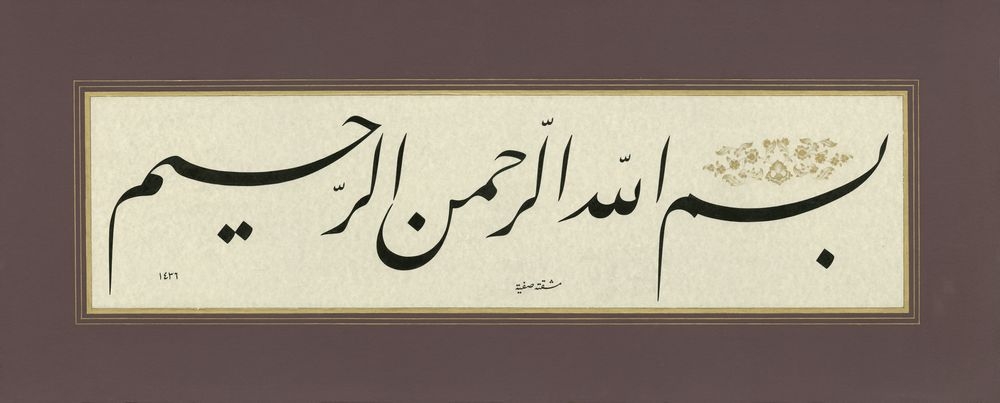 بسم الله الرّحمن الرّحيم
مشقته صفية
١٤٣٦